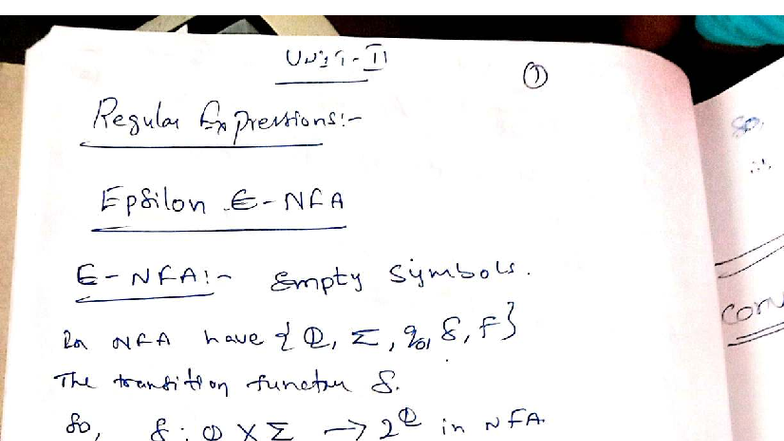 Unit-II
①
Regular Expressions:-
Epsilon ∈-NFA
∈-NFA:- Empty Symbols.
In NFA have {Q, Σ, q₀, δ, F}
The transition function δ.
So, δ: Q X Σ → 2^Q in NFA.
So,
∴
Conv